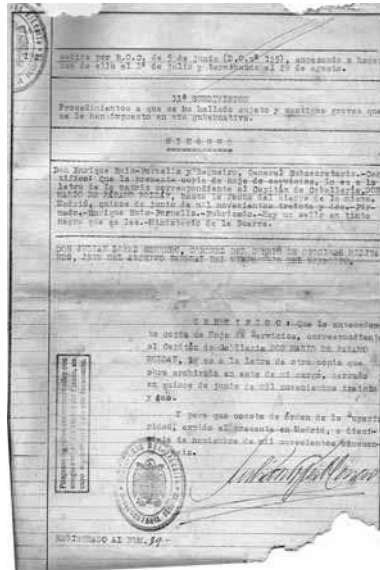 medica por R.O.C. de 5 de junio (D.O.nº 125), empezando a hacer
uso de ella el 1º de julio y terminando el 29 de agosto.
11ª SUBDIVISION
Procedimientos a que se ha hallado sujeto y castigos graves que
se le han impuesto en vía gubernativa.
NINGUNO
Don Enrique Ruiz-Fornells y Regueiro, General Subsecretario.-Cer
tifico: Que la presente copia de hoja de servicios, lo es a la
letra de la matriz correspondiente al Capitán de Caballería DON
MARIO DE PÁRAMO ROLDÁN, hasta la fecha del cierre de la misma.
Madrid, quince de junio de mil novecientos treinta y dos.-Fir-
mado.-Enrique Ruiz-Fornells.-Rubricado.-Hay un sello en tinta
negra que se lee.-Ministerio de la Guerra.
DON JULIAN
CERTIFICO: Que la anteceden
te copia de Hoja de Servicios, correspondiente
al Capitán de Caballería DON MARIO DE PÁRAMO
ROLDAN, lo es a la letra de otra copia que
obra archivada en este de mi cargo, cerrada
en quince de junio de mil novecientos treinta
y dos.
Y para que conste de órden de la Superio
ridad, expido el presente en Madrid, a dieci-
siete de noviembre de mil novecientos cincuen-
REGISTRADO AL NUM. 39-